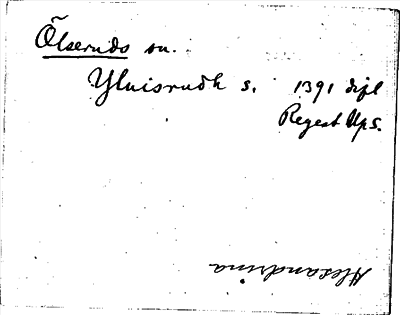 Ölseruds sn.
Yluisrudh s. 1391 dipl
Regest Ups.
Alexandrina